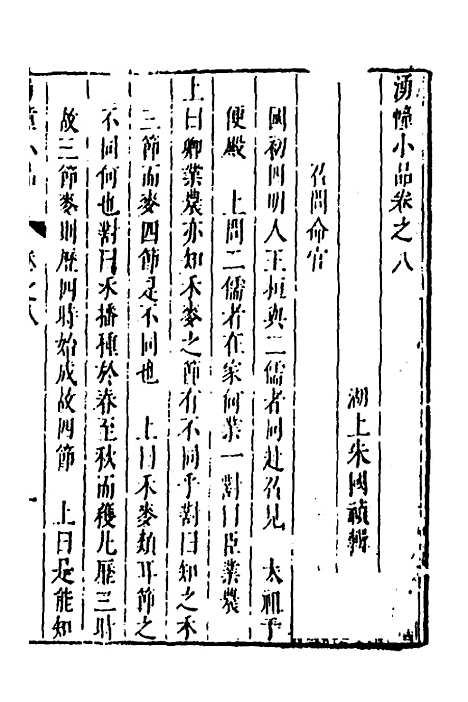 湧幢小品卷之八
湖上朱國禎輯
召問命官
國初四明人王桓與二儒者同赴召見 太祖于
便殿 上問二儒者在家何業一對曰臣業農
上曰卿業農亦知禾麥之節有不同乎對曰知之禾
三節而麥四節是不同也 上曰禾麥類耳節之
不同何也對曰禾播種於春至秋而穫凡歷三時
故三節麥則歷四時始成故四節 上曰是能知
小品 卷之八 一